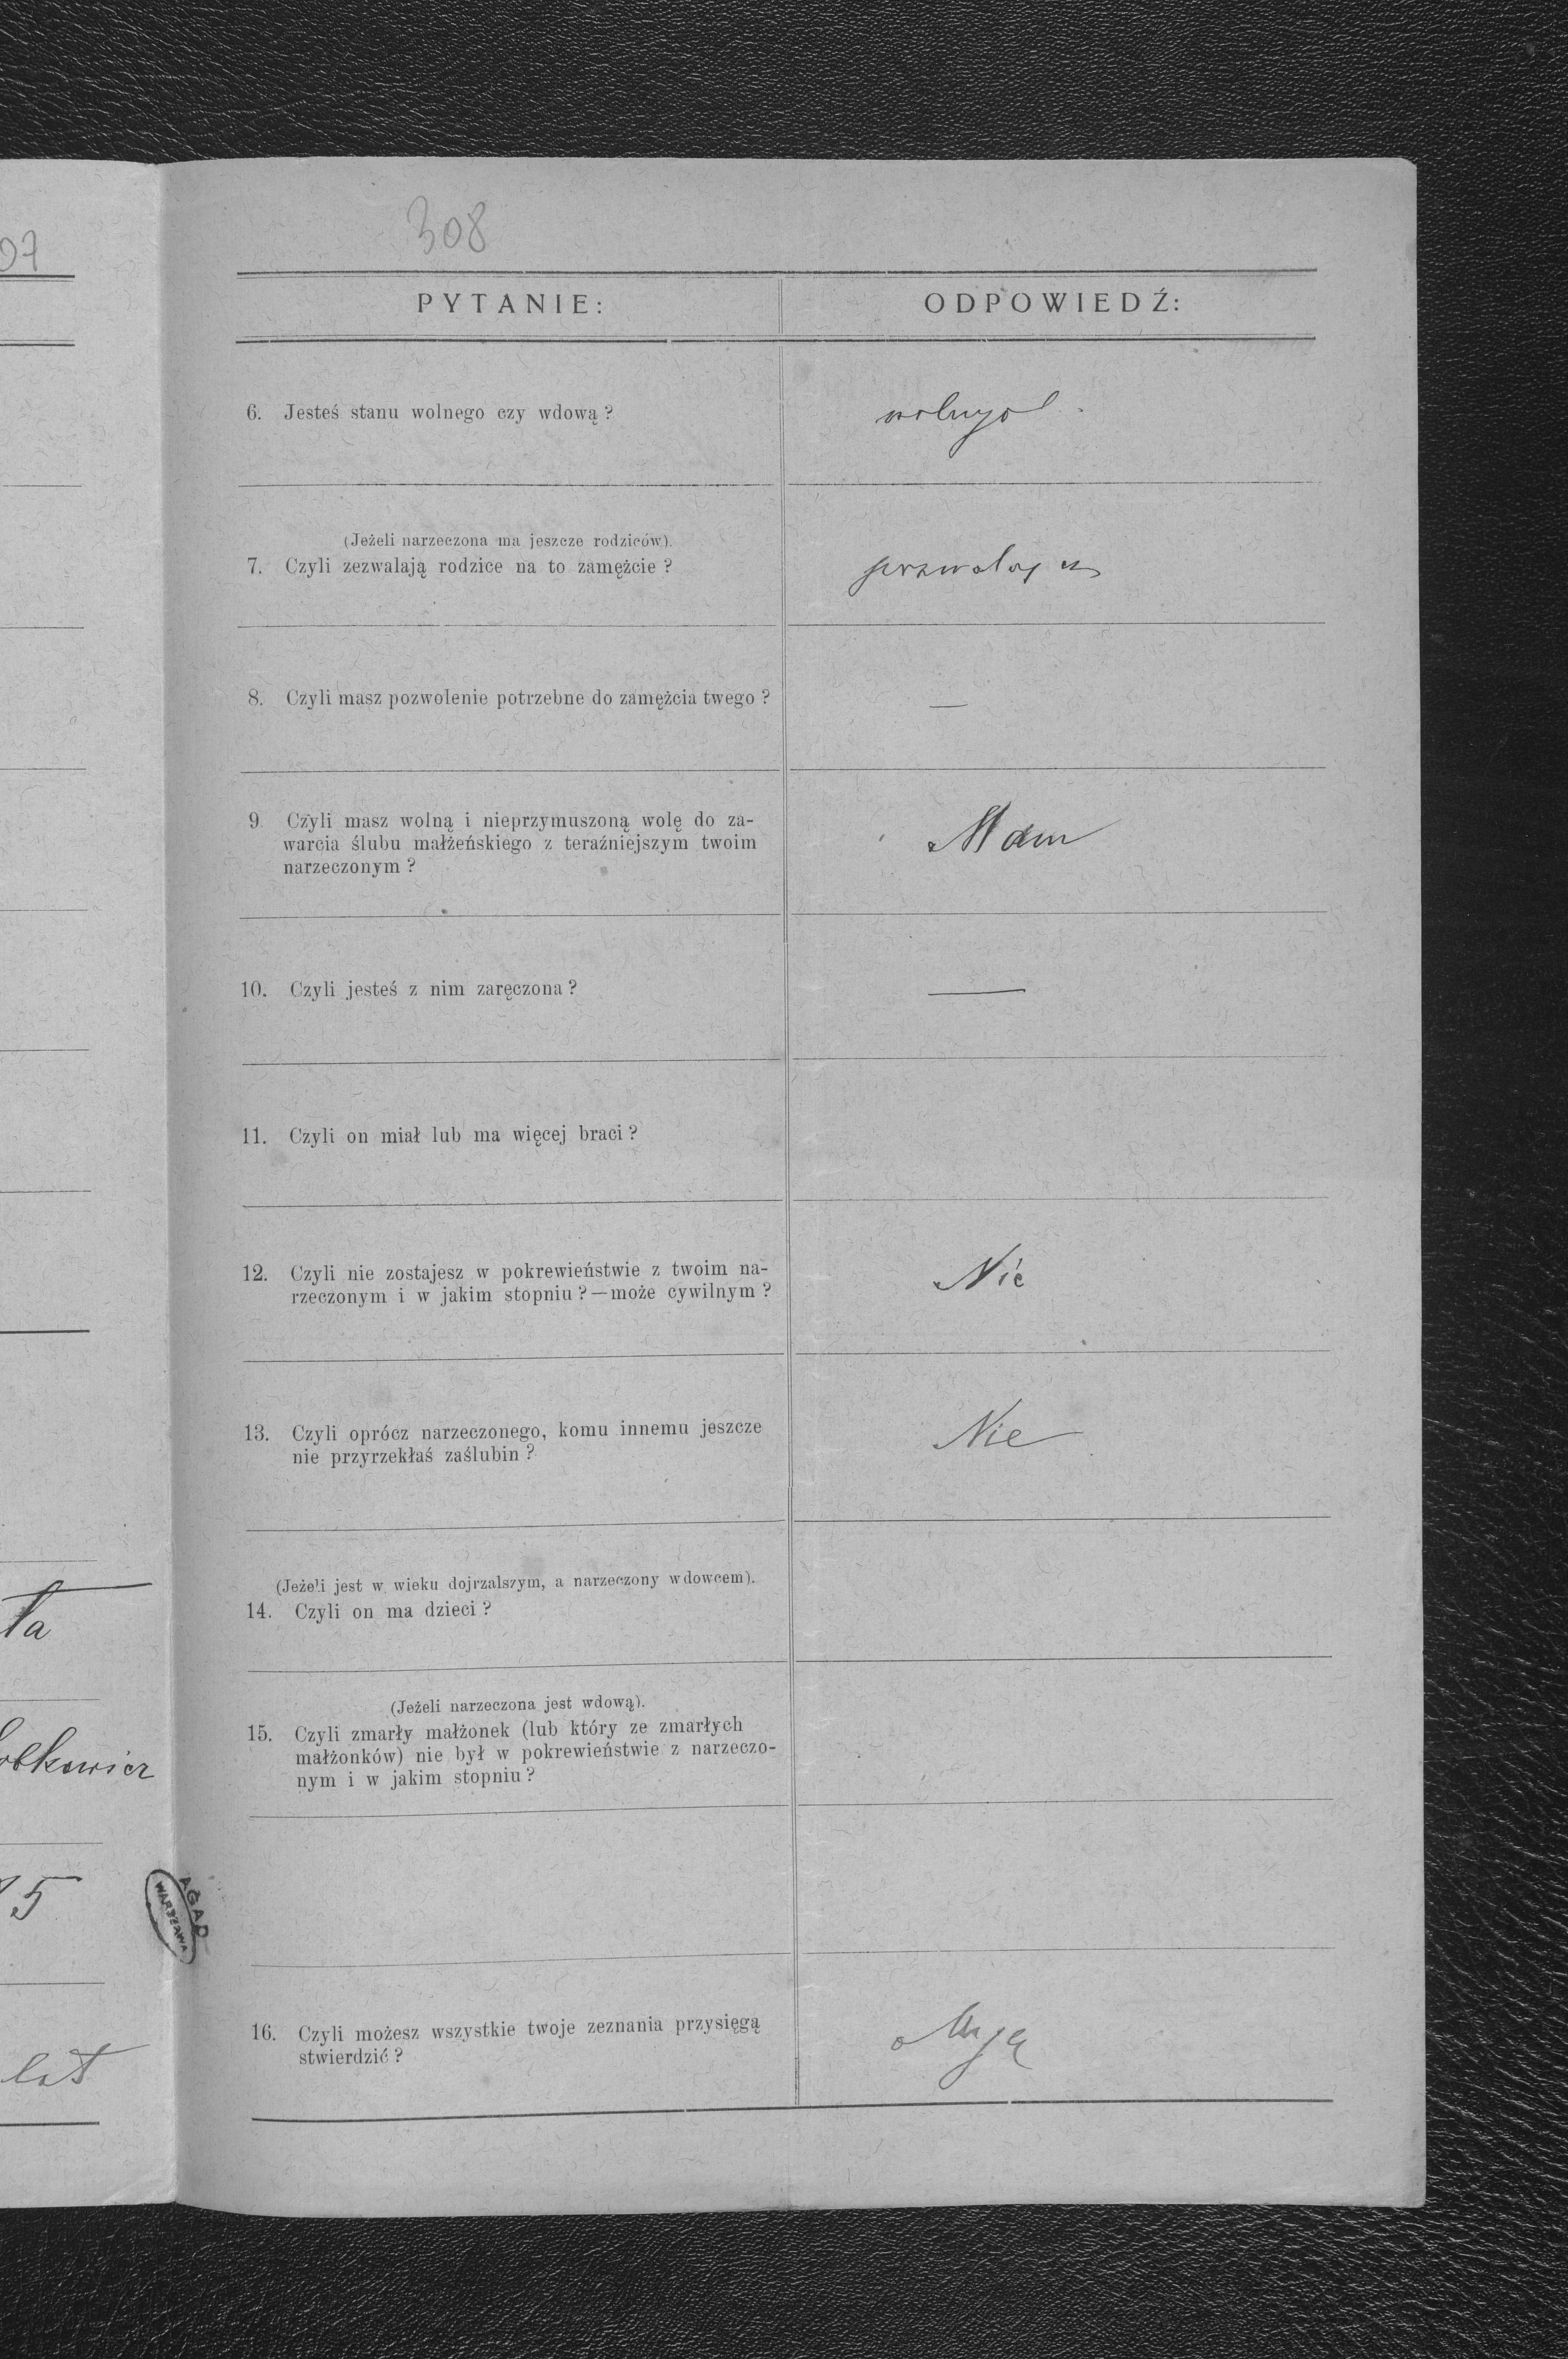 07
308
PYTANIE:
ODPOWIEDŹ:
6. Jesteś stanu wolnego czy wdową?
(Jeżeli narzeczona ma jeszcze rodziców).
7. Czyli zezwalają rodzice na to zamężcie?
8. Czyli masz pozwolenie potrzebne do zamężcia twego?
—
9. Czyli masz wolną i nieprzymuszoną wolę do za-
warcia ślubu małżeńskiego z teraźniejszym twoim
narzeczonym?
Mam
10. Czyli jesteś z nim zaręczona?
—
11. Czyli on miał lub ma więcej braci?
12. Czyli nie zostajesz w pokrewieństwie z twoim na-
rzeczonym i w jakim stopniu?—może cywilnym?
Nie
13. Czyli oprócz narzeczonego, komu innemu jeszcze
nie przyrzekłaś zaślubin?
Nie
(Jeżeli jest w wieku dojrzalszym, a narzeczony wdowcem).
14. Czyli on ma dzieci?
ta
(Jeżeli narzeczona jest wdową).
15. Czyli zmarły małżonek (lub który ze zmarłych
małżonków) nie był w pokrewieństwie z narzeczo-
nym i w jakim stopniu?
5
AGAD
WARSZAWA
16. Czyli możesz wszystkie twoje zeznania przysięgą
stwierdzić?
Mogę
lat